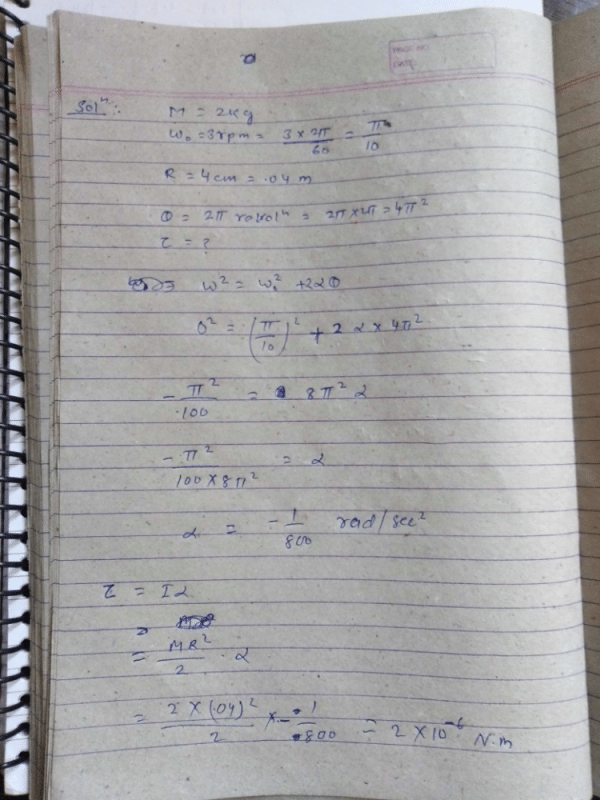 PAGE NO.
DATE:
Solⁿ:. M = 2kg
W₀ = 3rpm = 3 × 2π / 60 = π / 10
R = 4cm = .04 m
θ = 2π = 2π × 2π = 4π²
τ = ?
⇒ ω² = ω₀² + 2αθ
0² = (π/10)² + 2 α × 4π²
- π² / 100 = 8π² α
- π² / 100 × 8π² = α
α = - 1/800 rad/sec²
τ = Iα
= MR²/2 . α
= 2 × (.04)² / 2 × - 1/800 = 2 × 10⁻⁶ N.m